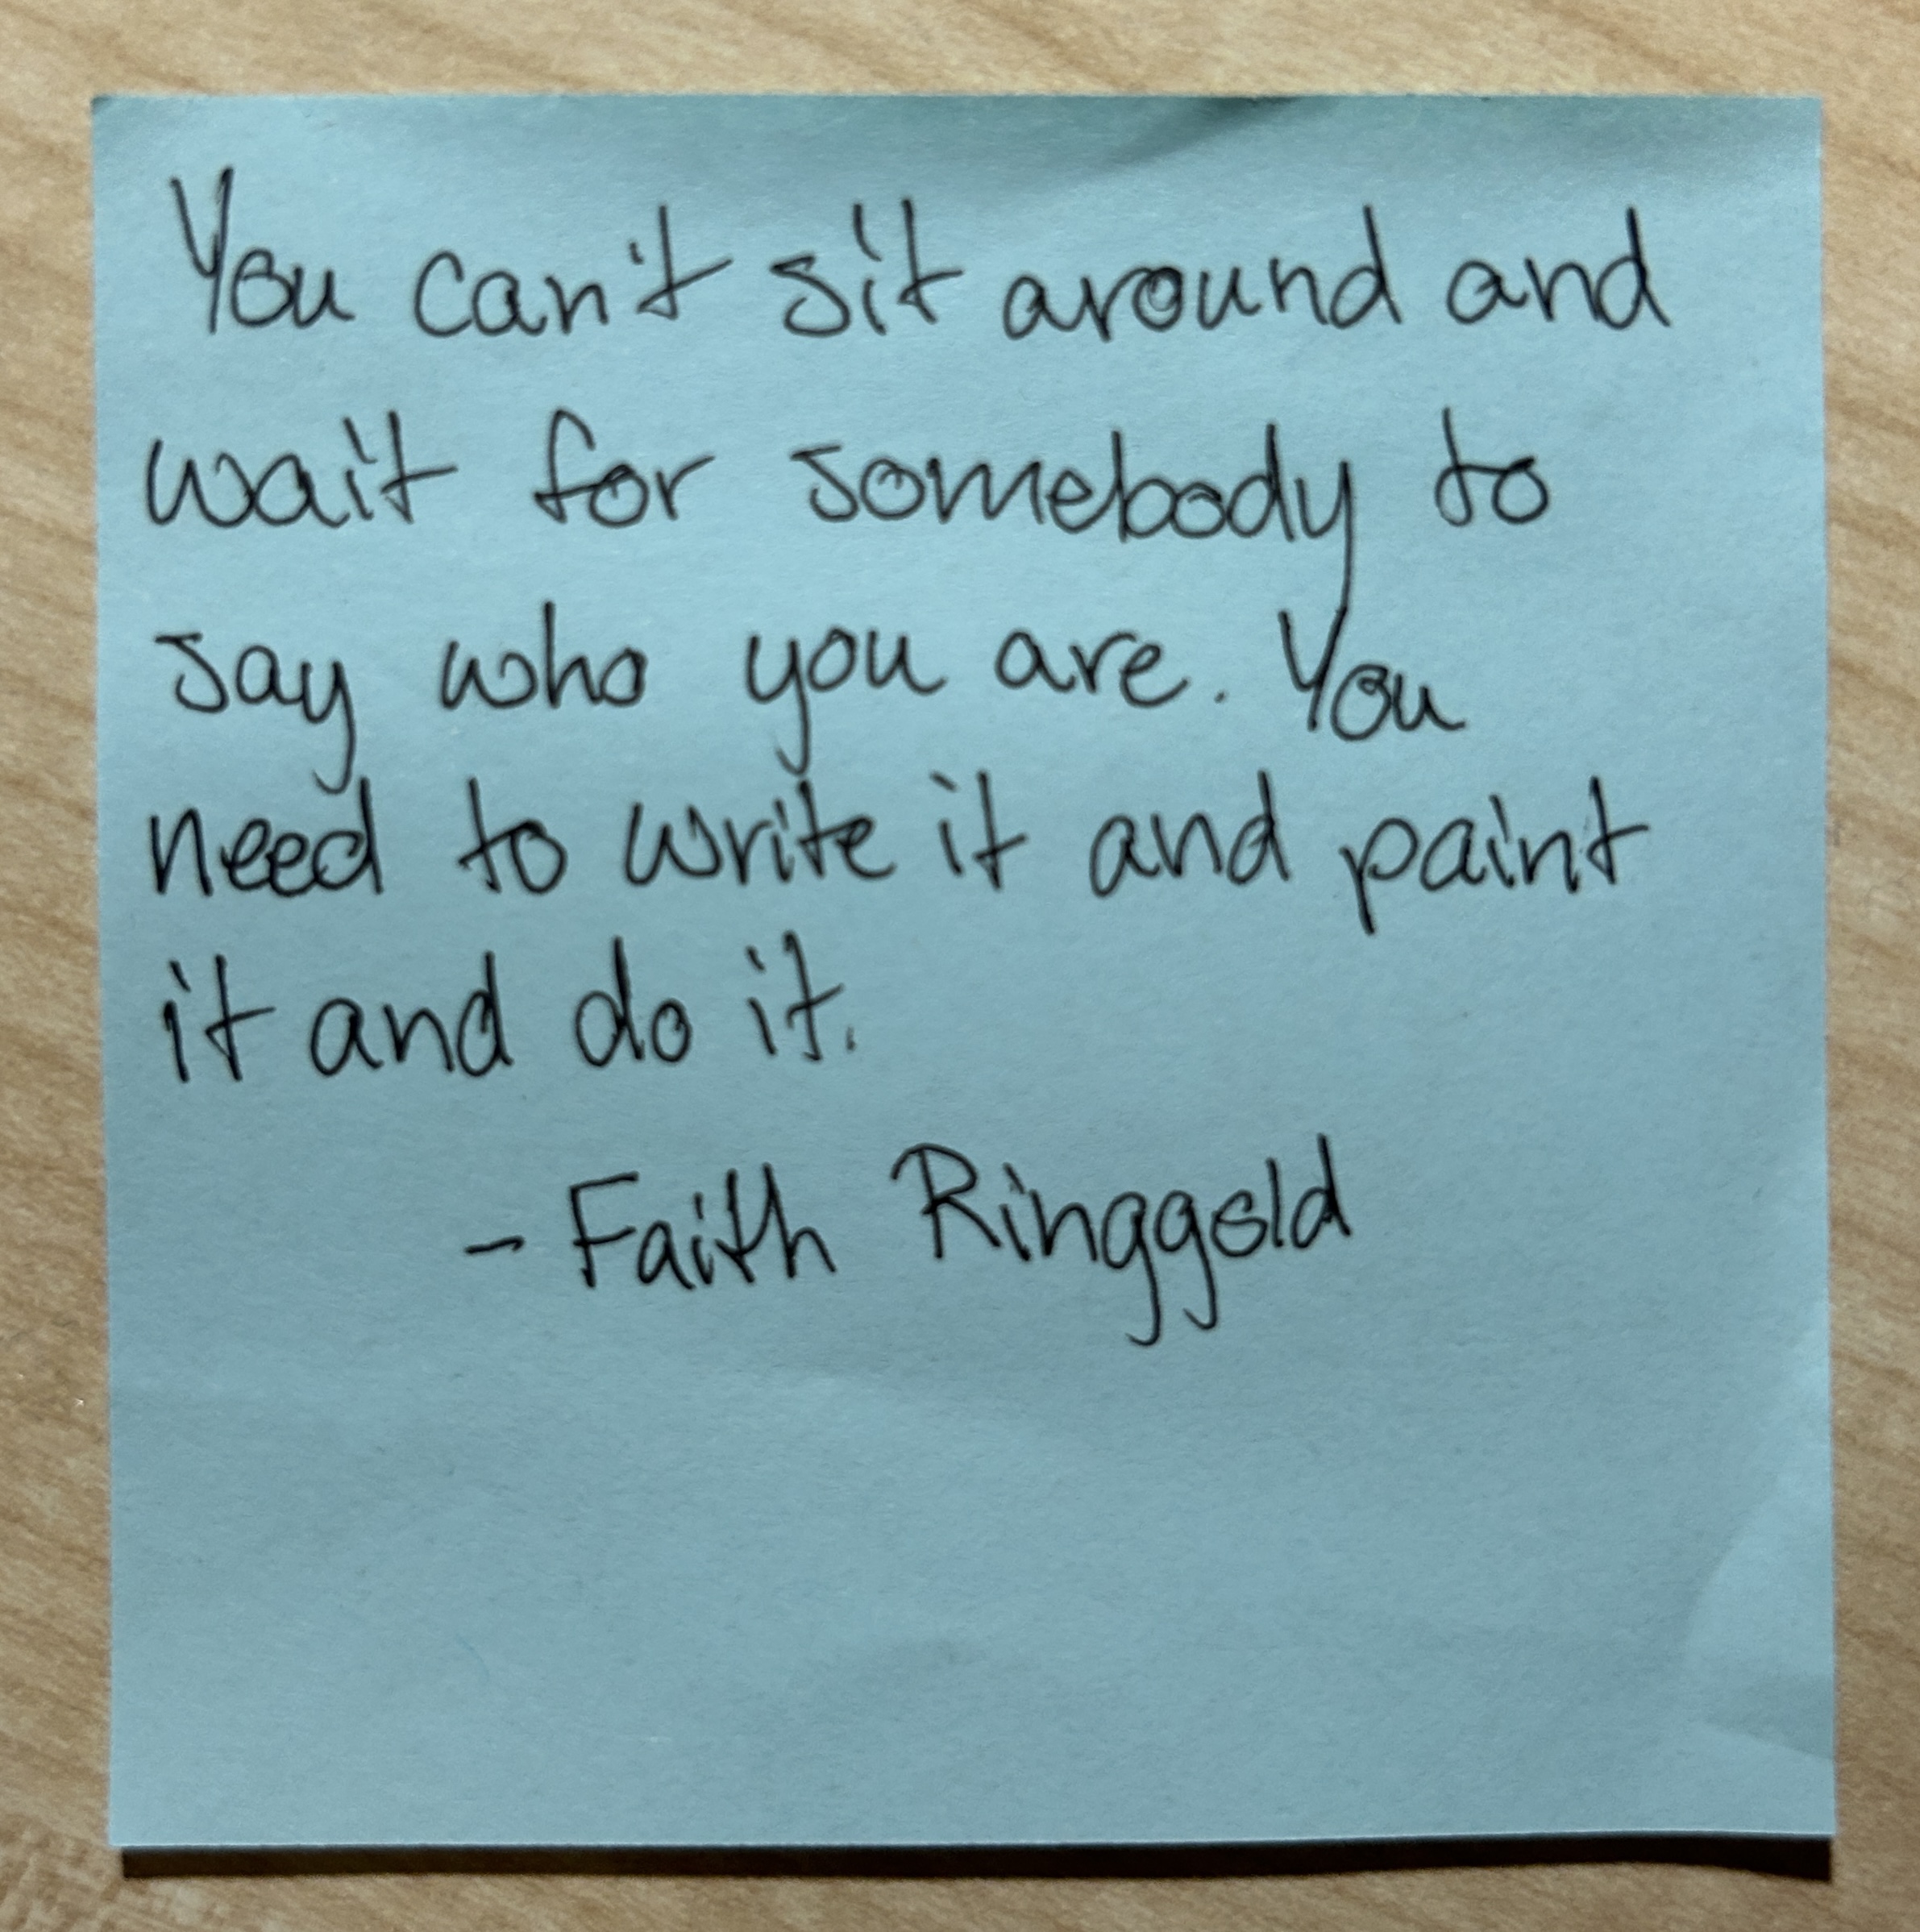 You can't sit around and
wait for somebody to
say who you are. You
need to write it and paint
it and do it.
- Faith Ringgold